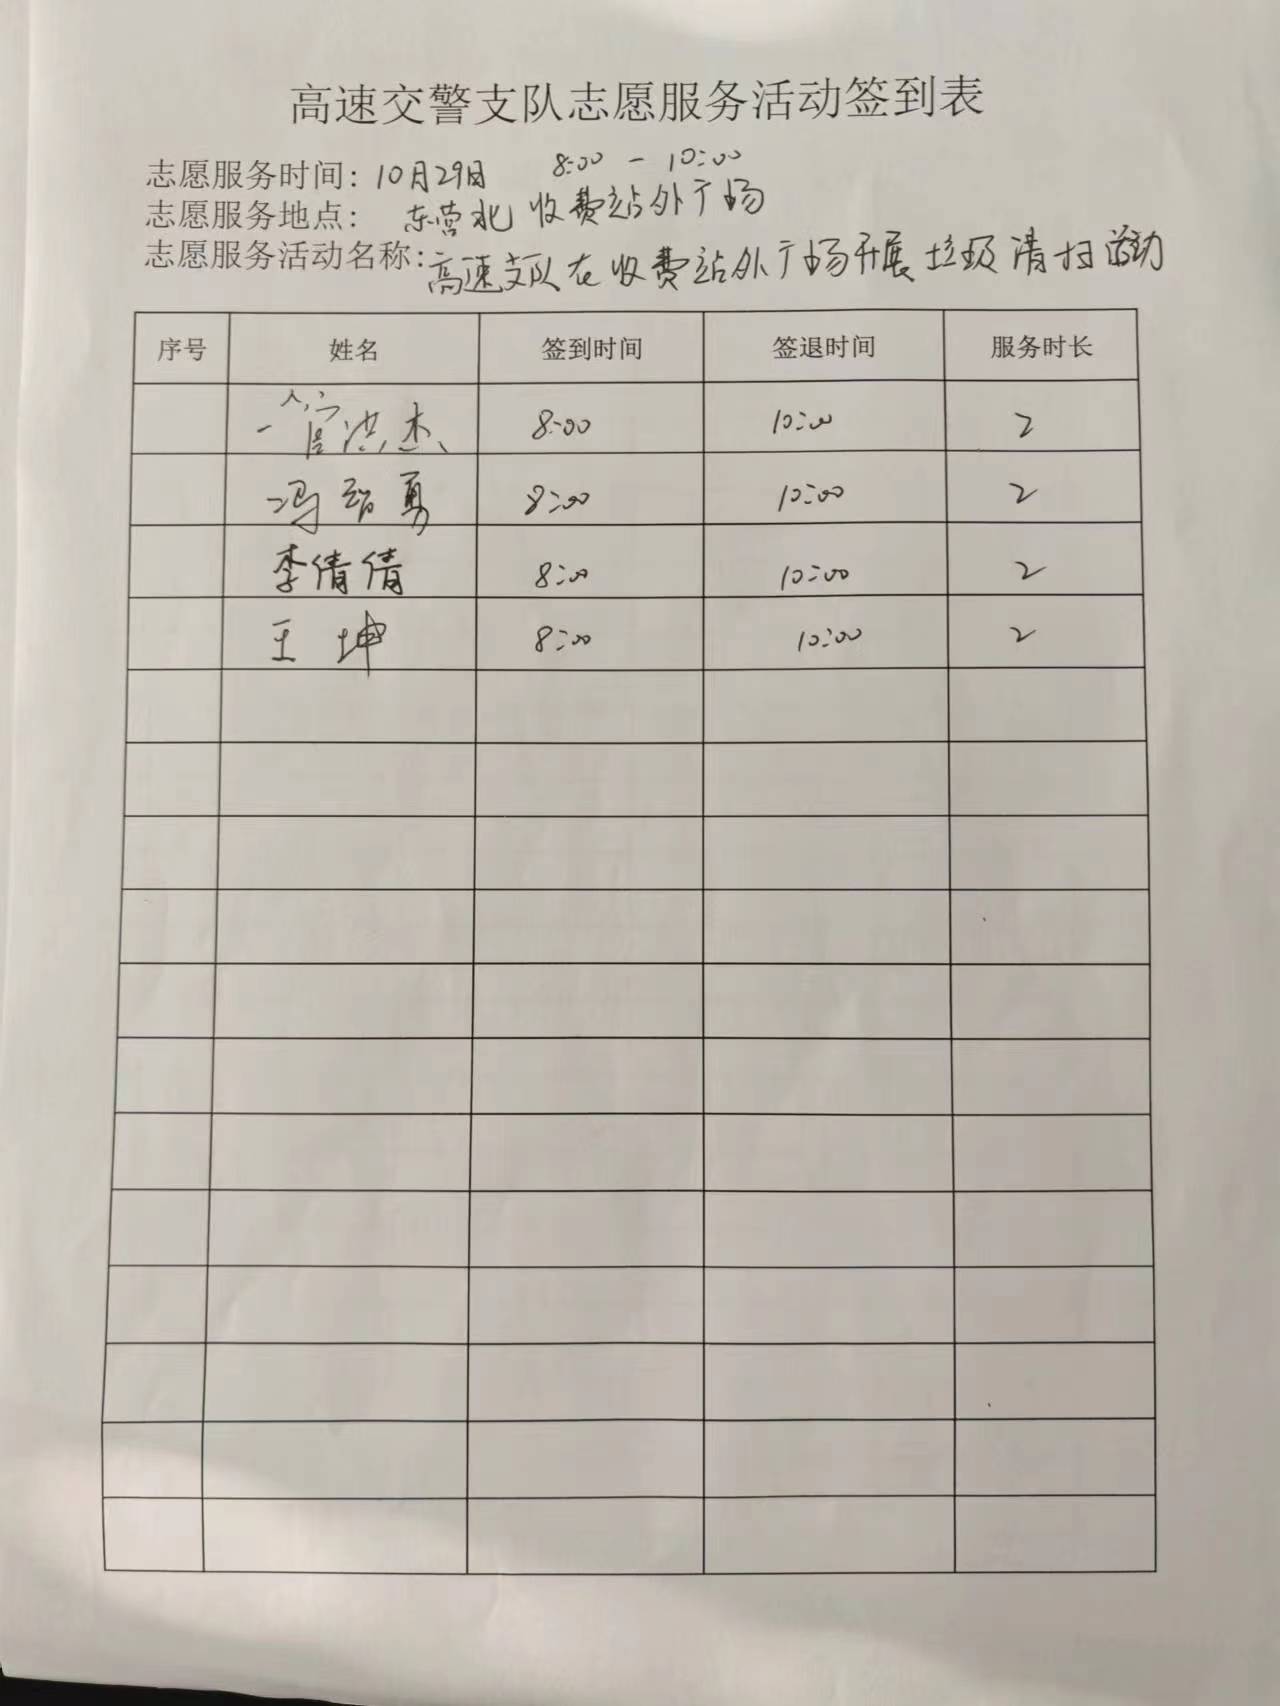 高速交警支队志愿服务活动签到表
志愿服务时间：10月29日 8:00 - 10:00
志愿服务地点： 东营北收费站外广场
志愿服务活动名称：高速支队在收费站外广场开展垃圾清扫活动
序号 姓名 签到时间 签退时间 服务时长
洪杰 8:00 10:00 2
冯 勇 8:00 10:00 2
李倩倩 8:00 10:00 2
王坤 8:00 10:00 2